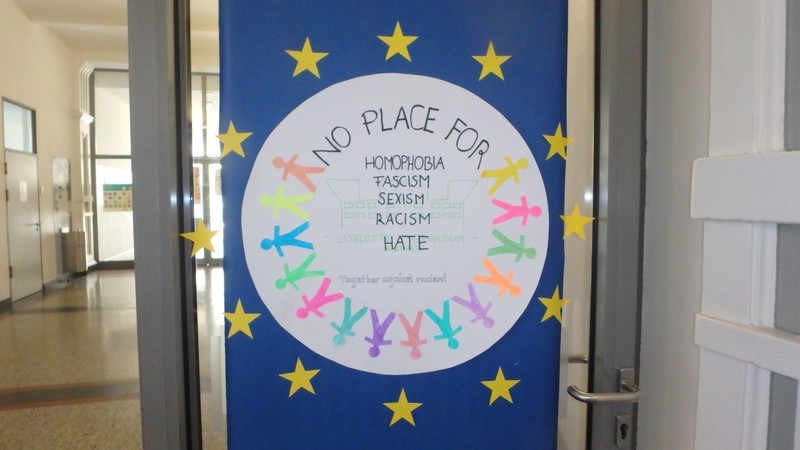 NO PLACE FOR
HOMOPHOBIA
FASCISM
SEXISM
RACISM
HATE
Together against racism!